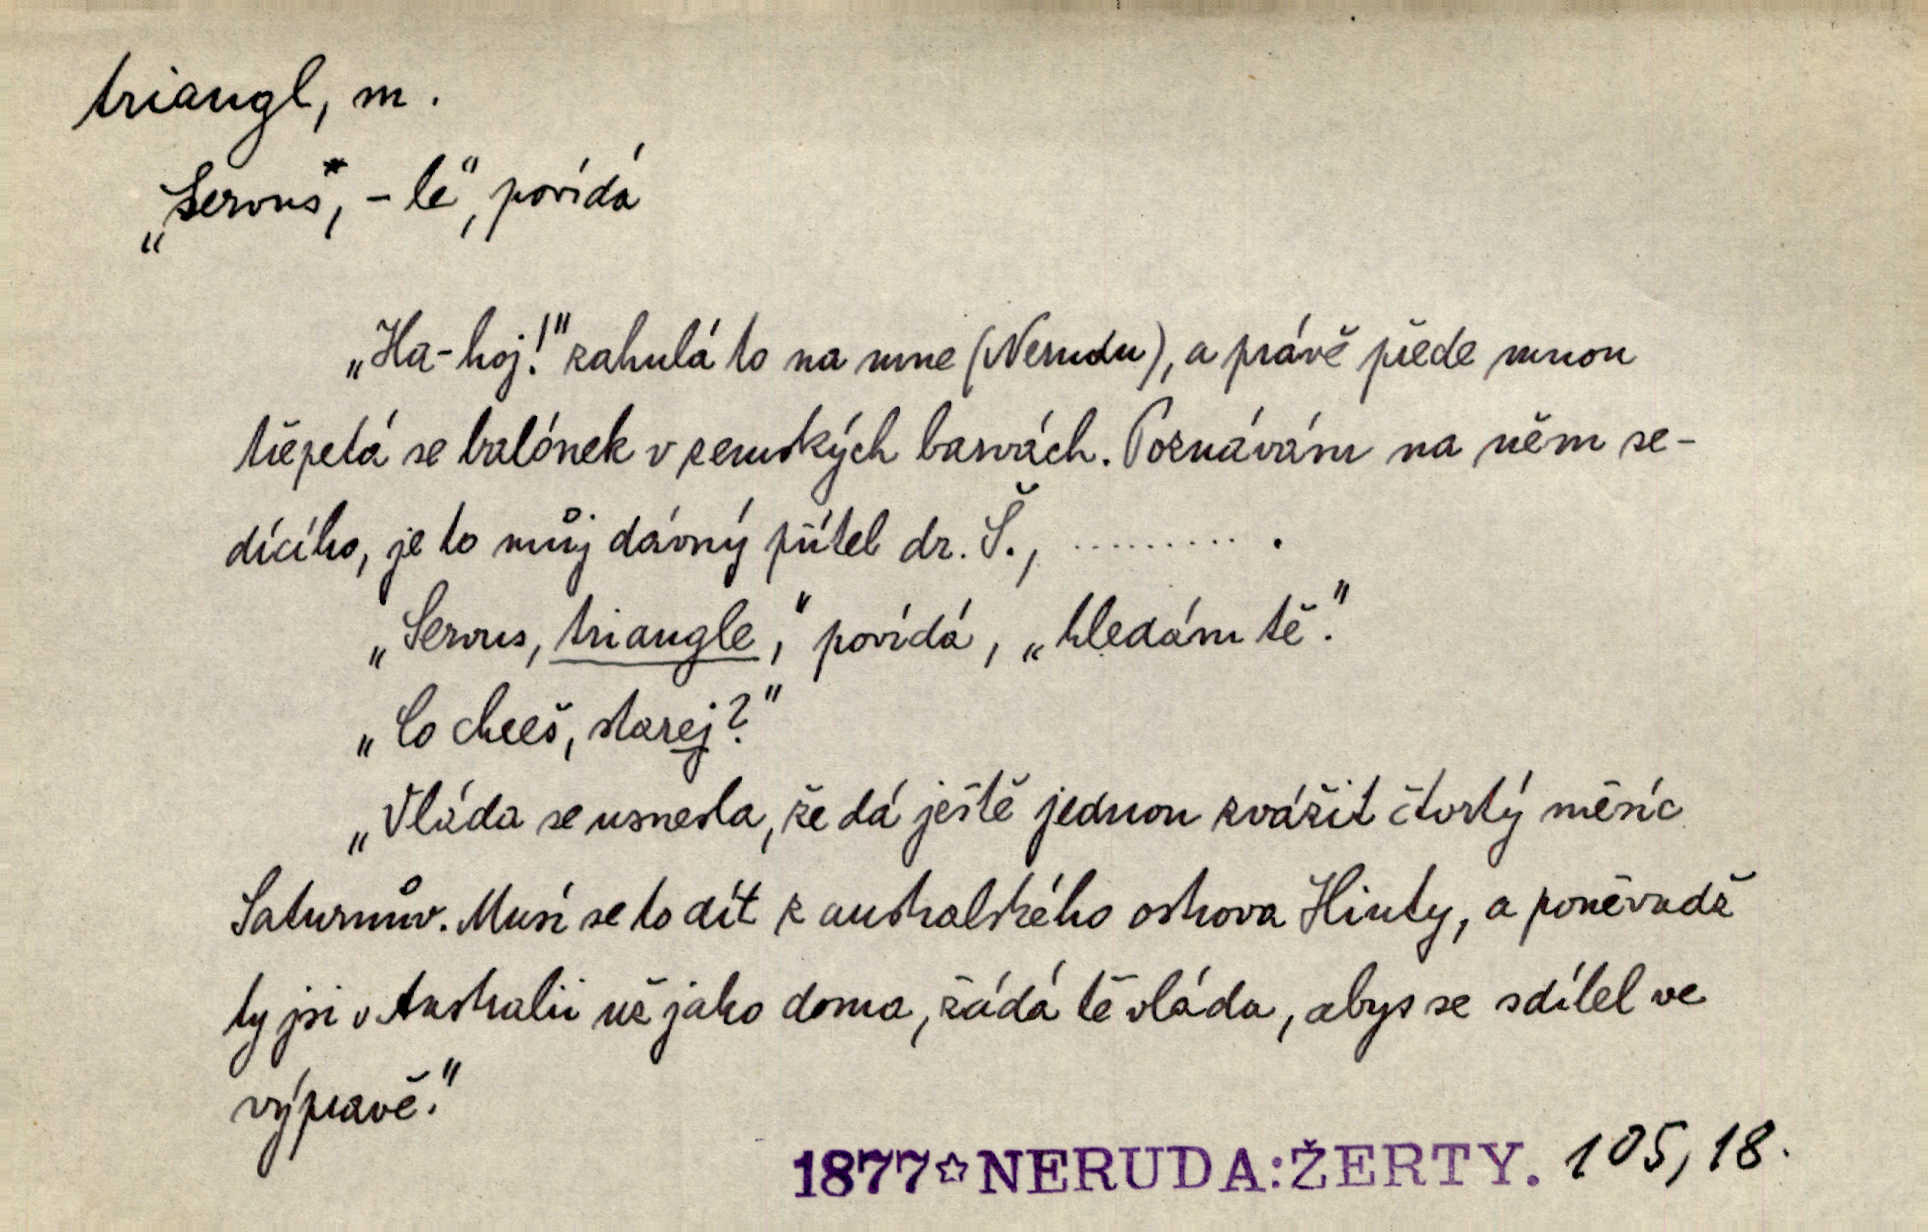 triangl, m.
„Servus*, -le", povídá
„Ha-hoj!" zahulá to na mne (Nerudu), a právě přede mnou
třepetá se balónek v zemských barvách. Poznávám na něm se-
dícího, je to můj dávný přítel dr. Š., .......... .
„Servus, triangle," povídá, „hledám tě."
„Co chceš, starej?"
„Vláda se usnesla, že dá ještě jednou zvážit čtvrtý měsíc
Saturnův. Musí se to dít z australského ostrova Hinty, a poněvadž
ty jsi v Australii už jako doma, žádá tě vláda, abys se sdílel ve
výpravě."
1877☆NERUDA:ŽERTY. 105,18.